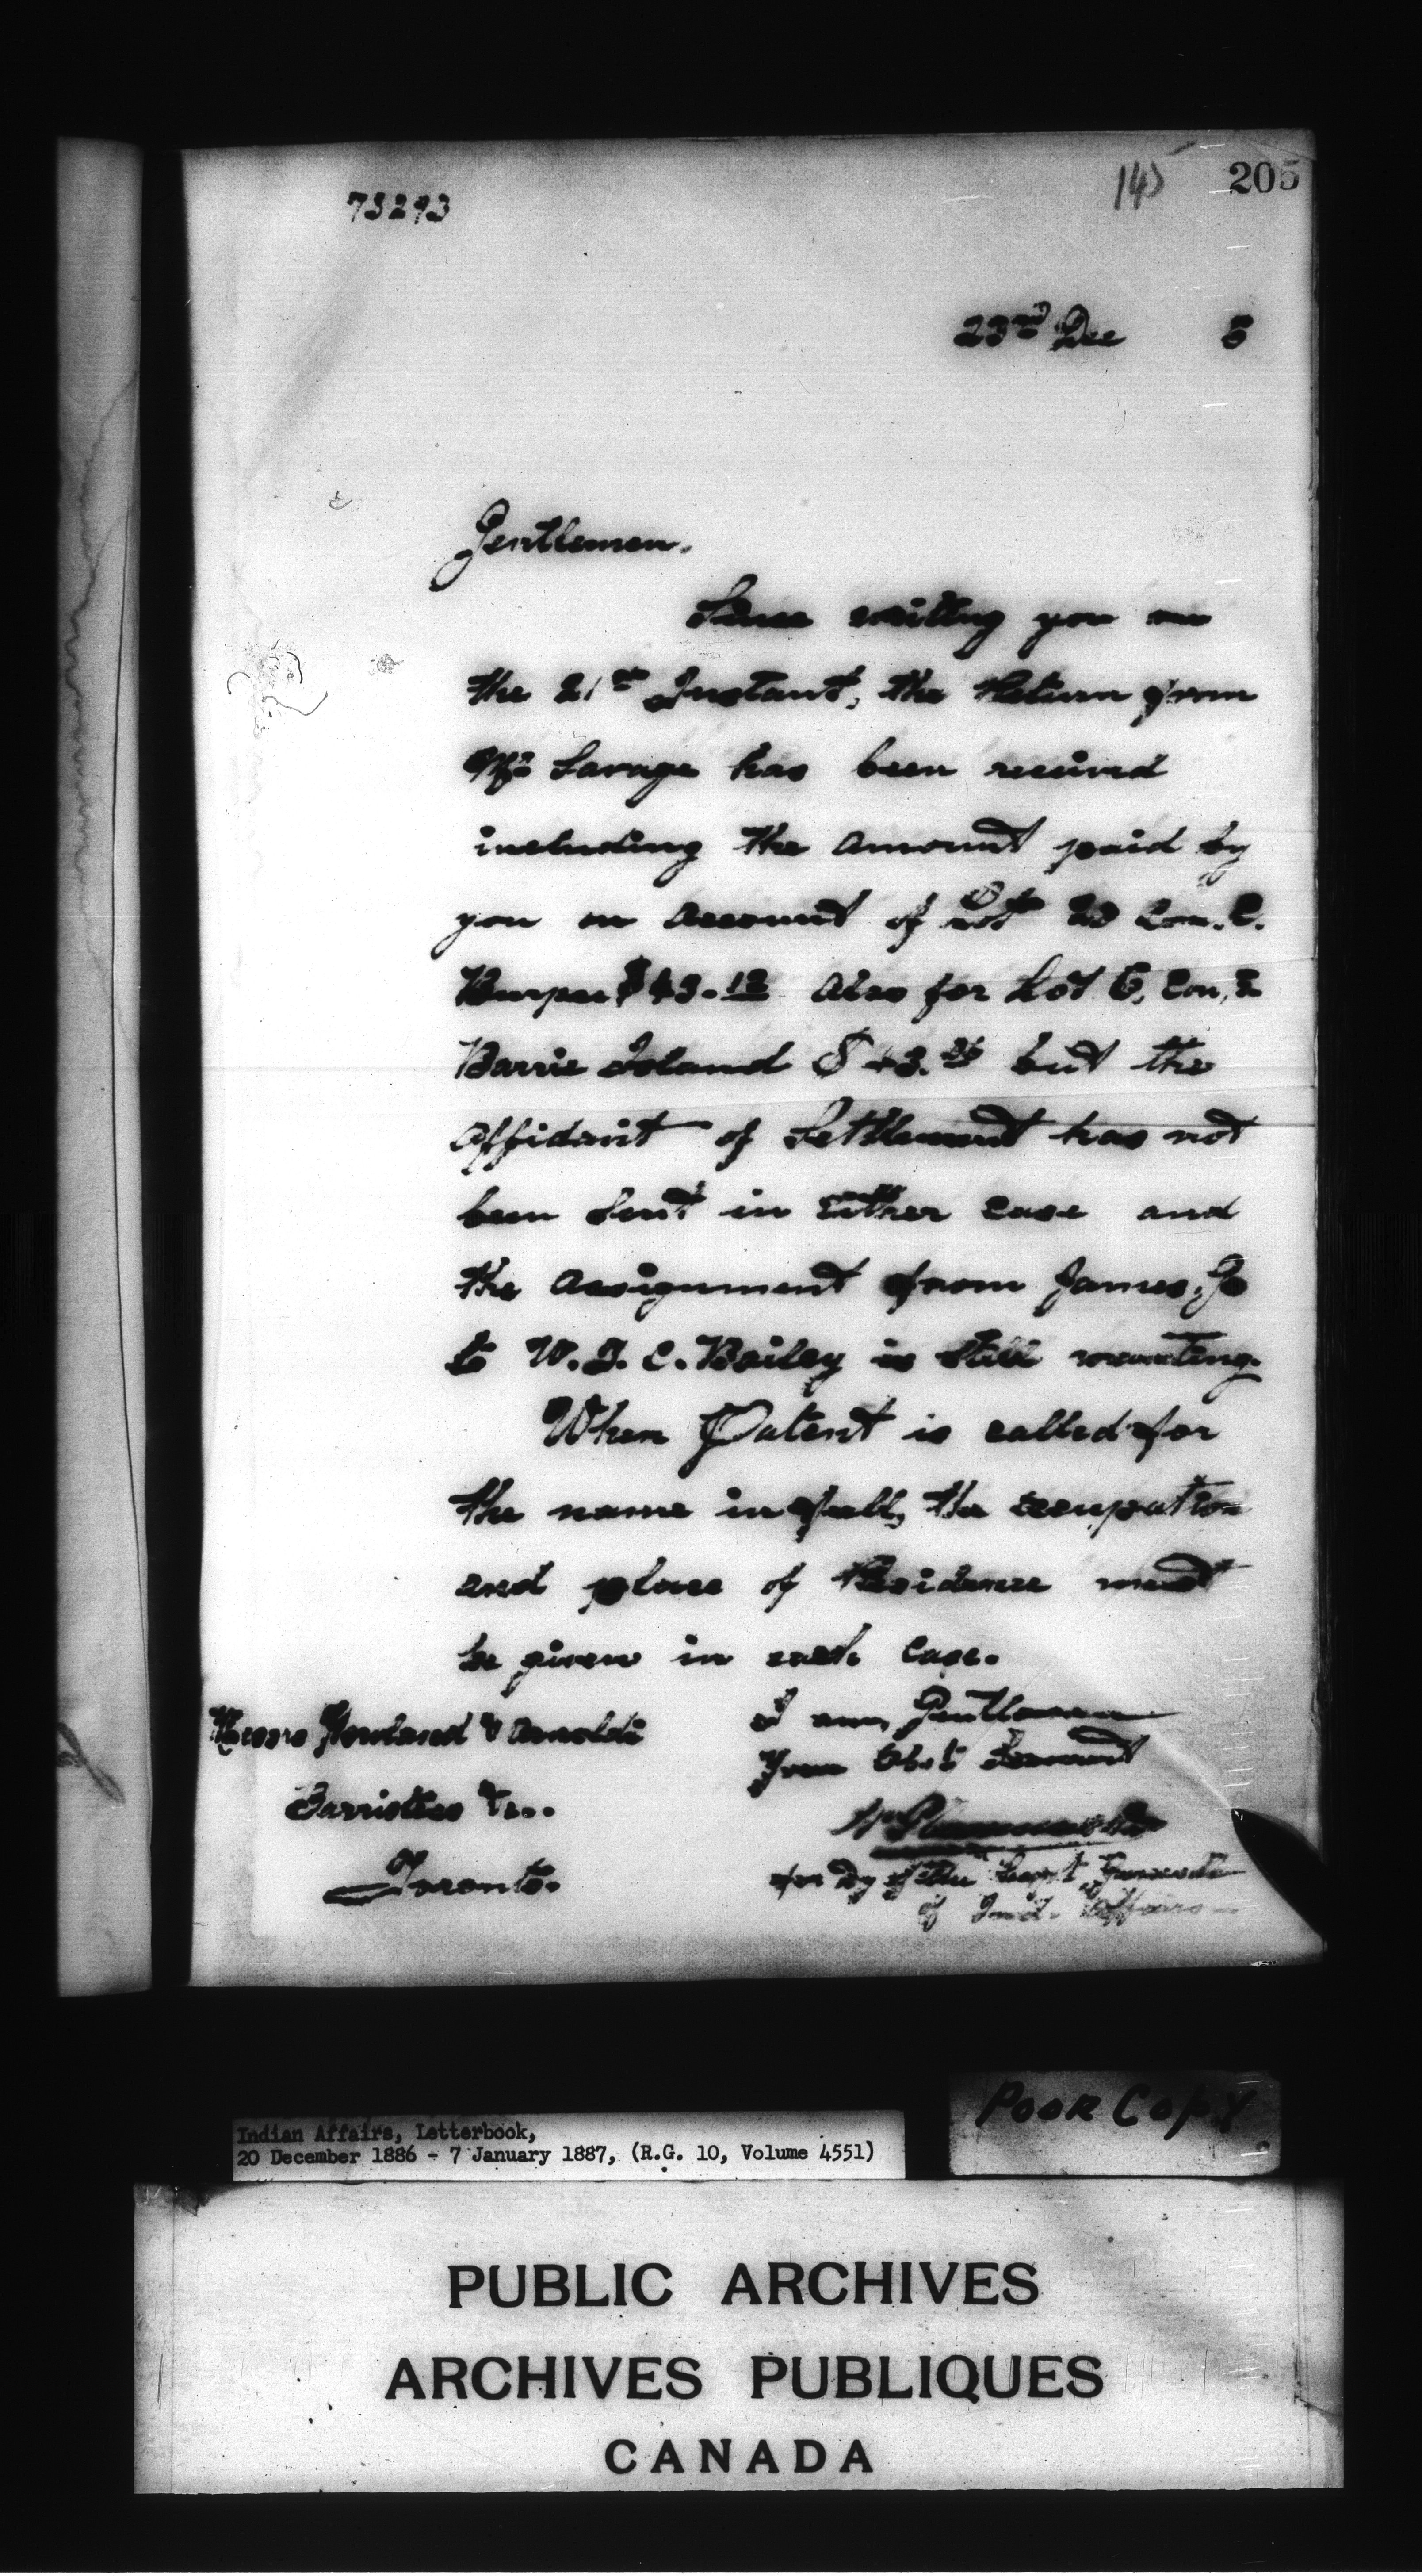 205
145
73293
23rd Dec 6
Gentlemen.
Since writing you on
the 21st Instant, the Return from
Mr Savage has been received
including the Amount paid by
you on Account of Lot 20 Con. C.
Burpee $43.12 Also for Lot 6, Con, 2
Barrie Island $43.26 but the
Affidavit of Settlement has not
been sent in either case and
the Assignment from James
to W. J. C. Bailey is still wanting.
When Patent is called for
the name in full, the occupation
and place of Residence must
be given in each case.
I am, Gentlemen
Your Obt Servant
for Dy of the Supt General
of Ind. Affairs
Messrs Howland & Arnoldi
Barristers &c..
Toronto.
POOR COPY
Indian Affairs, Letterbook,
20 December 1886 - 7 January 1887, (R.G. 10, Volume 4551)
PUBLIC ARCHIVES
ARCHIVES PUBLIQUES
CANADA